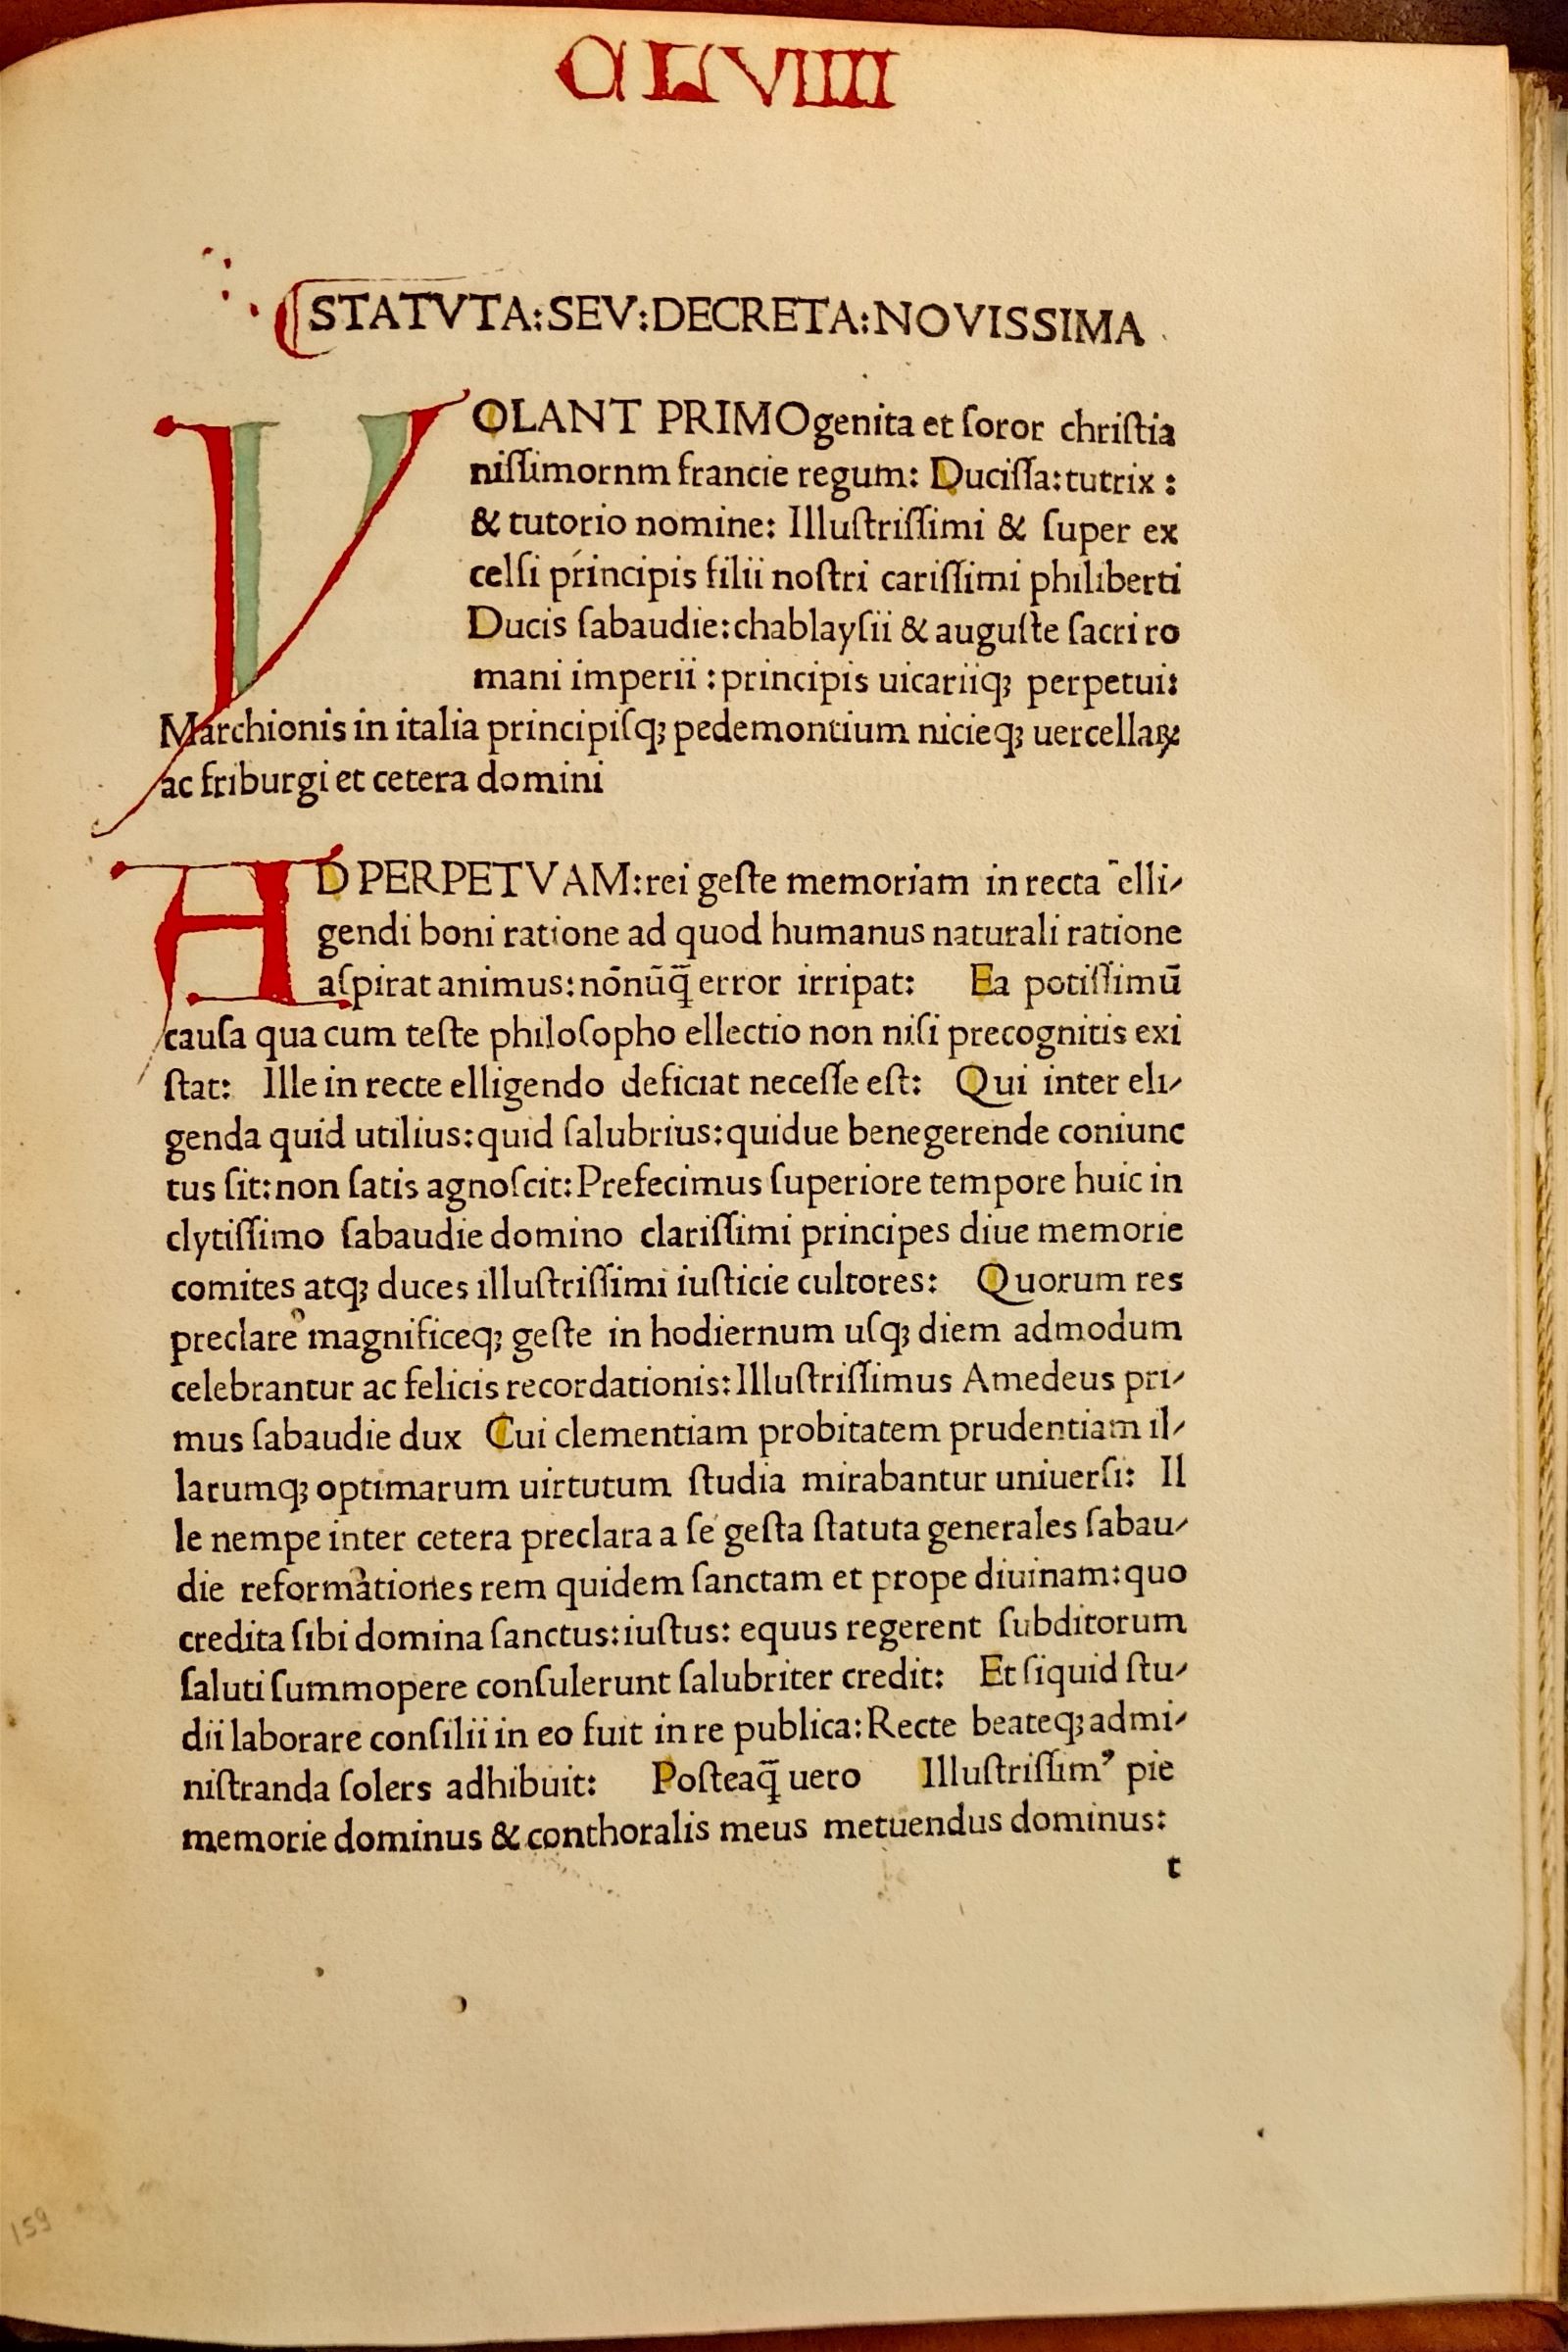 CLVIIII
STATVTA:SEV:DECRETA:NOVISSIMA
VOLANT PRIMOgenita et ſoror chriſtia
niſſimornm francie regum: Duciſſa:tutrix :
& tutorio nomine: Illuſtriſſimi & ſuper ex
celſi principis filii noſtri cariſſimi philiberti
Ducis ſabaudie:chablayſii & auguſte ſacri ro
mani imperii :principis uicariiqꝫ perpetui:
Marchionis in italia principiſqꝫ pedemontium nicieqꝫ uercellaꝝ
ac friburgi et cetera domini
AD PERPETVAM:rei geſte memoriam in recta ̄elli/
gendi boni ratione ad quod humanus naturali ratione
aſpirat animus:nōnūq̄ error irripat: Ea potiſſimū
cauſa qua cum teſte philoſopho ellectio non niſi precognitis exi
ſtat: Ille in recte elligendo deficiat neceſſe eſt: Qui inter eli/
genda quid utilius:quid ſalubrius:quidue benegerende coniunc
tus ſit:non ſatis agnoſcit:Prefecimus ſuperiore tempore huic in
clytiſſimo ſabaudie domino clariſſimi principes diue memorie
comites atqꝫ duces illuſtriſſimi iuſticie cultores: Quorum res
preclare magnificeqꝫ geſte in hodiernum uſqꝫ diem admodum
celebrantur ac felicis recordationis:Illuſtriſſimus Amedeus pri/
mus ſabaudie dux Cui clementiam probitatem prudentiam il/
larumqꝫ optimarum uirtutum ſtudia mirabantur uniuerſi: Il
le nempe inter cetera preclara a ſe geſta ſtatuta generales ſabau/
die reformationes rem quidem ſanctam et prope diuinam:quo
credita ſibi domina ſanctus:iuſtus: equus regerent ſubditorum
ſaluti ſummopere conſulerunt ſalubriter credit: Et ſiquid ſtu/
dii laborare conſilii in eo fuit in re publica:Recte beateqꝫ admi/
niſtranda ſolers adhibuit: Poſteaq̄ uero Illuſtriſſimꝰ pie
memorie dominus & conthoralis meus metuendus dominus:
t
159